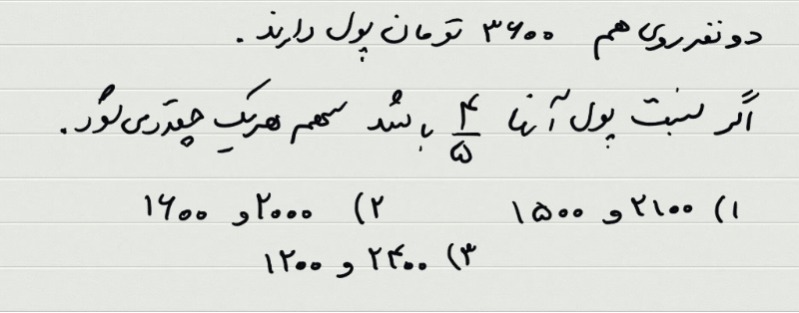 دو نفر روی هم ۳۶۰۰ تومان پول دارند .
اگر نسبت پول آنها ۴/۵ باشد سهم هریک چقدر می‌شود .
۱) ۲۱۰۰ و ۱۵۰۰ ۲) ۲۰۰۰ و ۱۶۰۰
۳) ۲۴۰۰ و ۱۲۰۰